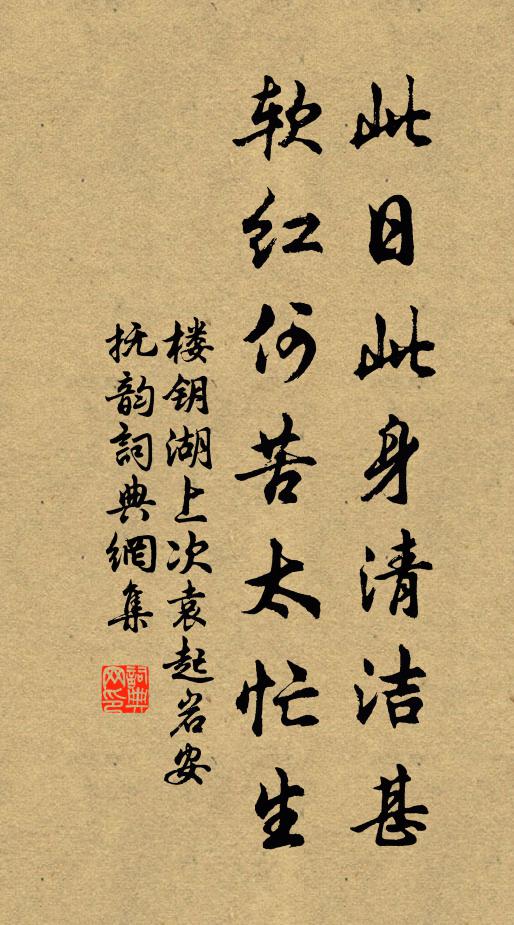 此日此身清洁甚
软红何苦太忙生
楼钥湖上次袁起岩安
抚韵詞典網集
詞典網印